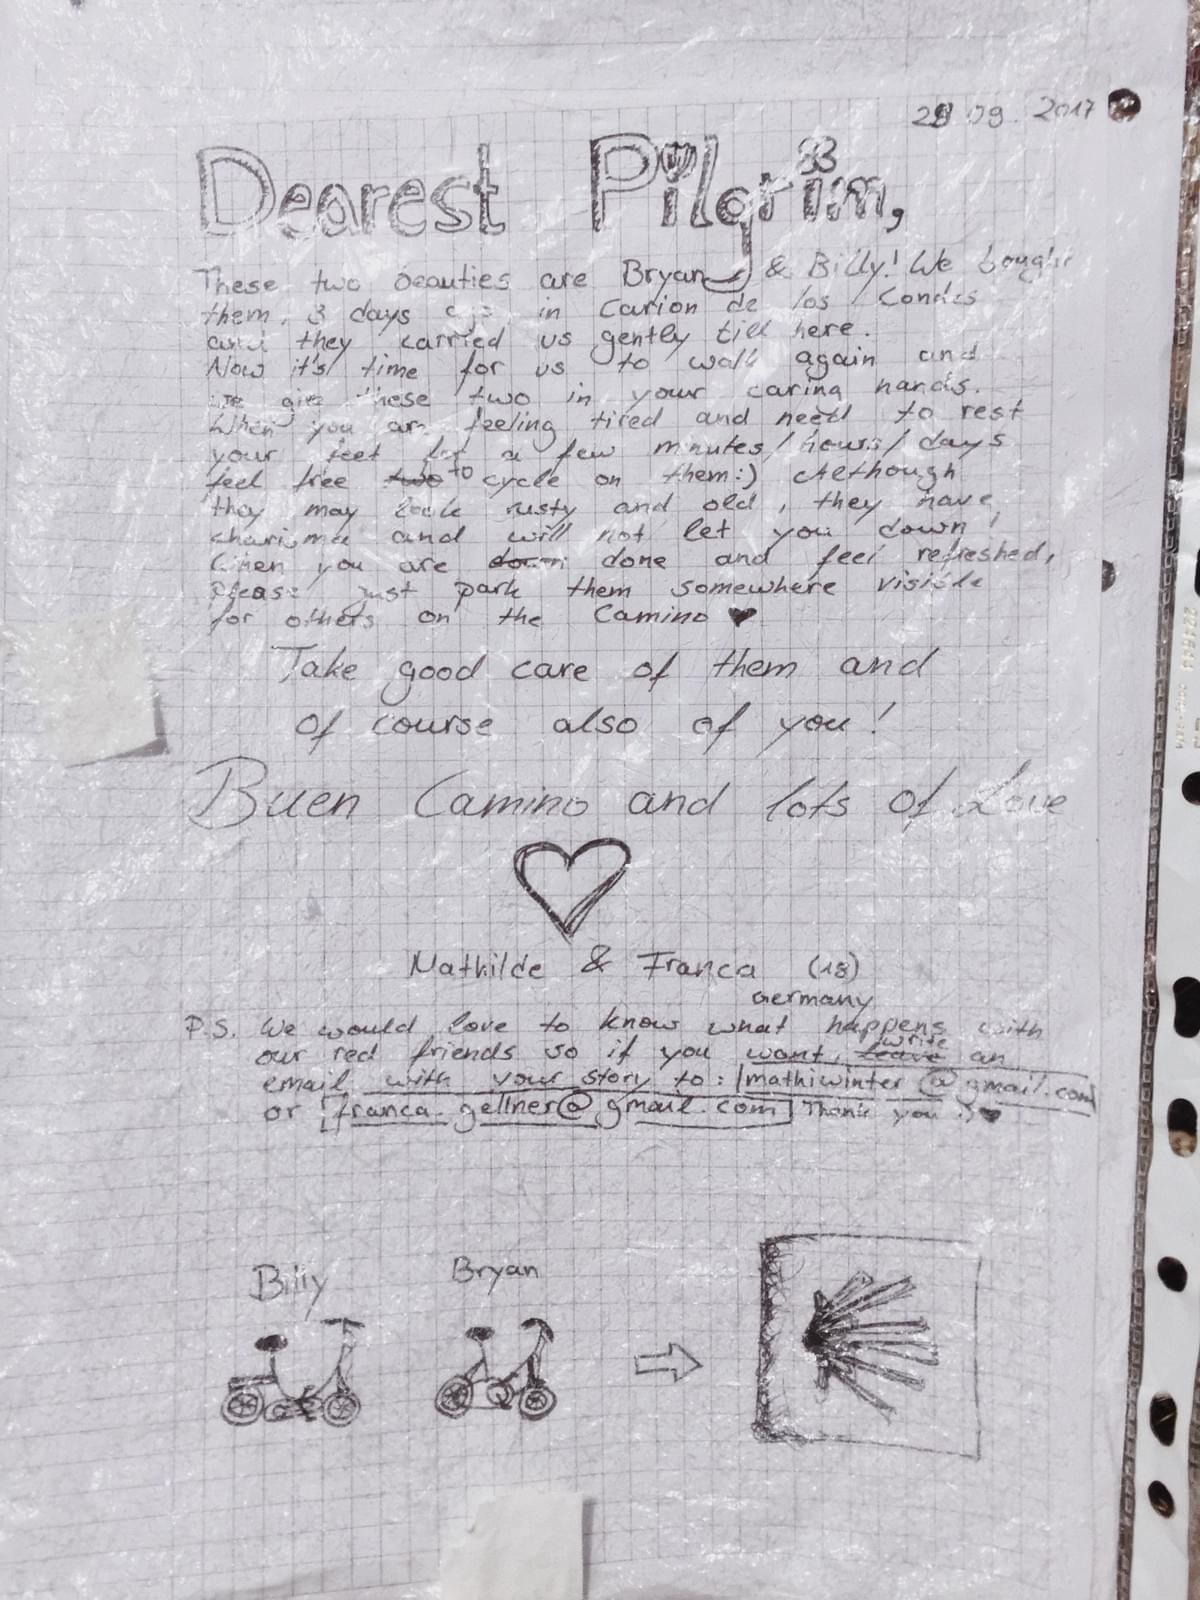 09. 2017
Dearest Pilgrim,
These two beauties are Bryan & Billy! We bought
them 3 days ago in Carion de los Condes
and they carried us gently till here.
Now it's time for us to walk again and
we give these two in your caring hands.
When you are feeling tired and need to rest
your feet for a few minutes/hours/days
feel free two to cycle on them:) Although
they may look rusty and old, they have
charisma and will not let you down!
When you are down done and feel refreshed,
please just park them somewhere visible
for others on the Camino ♥
Take good care of them and
of course also of you!
Buen Camino and lots of Love
Mathilde & Franca (18)
Germany
P.S. We would love to know what happens with
our red friends so if you want, leave write an
email with your story to: mathiwinter@gmail.com
or franca.gellner@gmail.com Thank you :) ♥
Billy Bryan